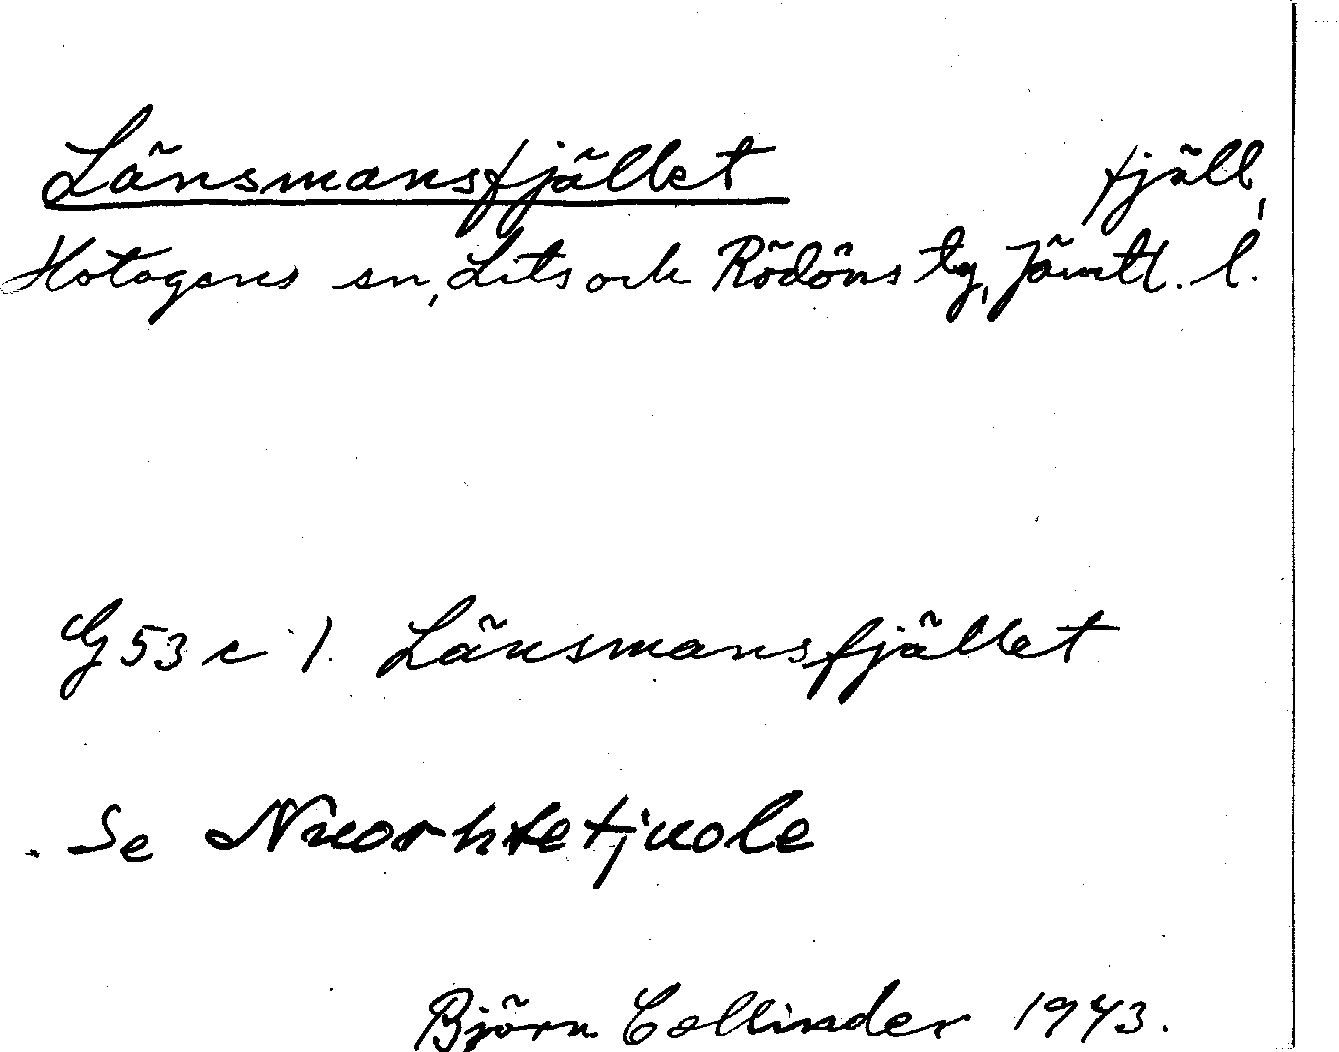 Länsmansfjället fjäll,
Hotagens sn, Lits och Rödöns tg, Jämtl. l.
G 53 c 1. Länsmansfjället
Se Nuorhtetjuole
Björn Collinder 1943.